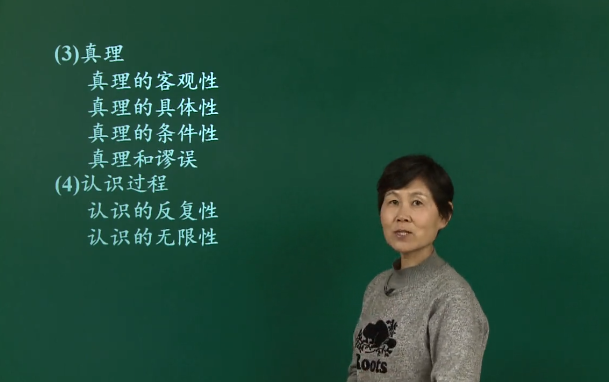 (3)真理
真理的客观性
真理的具体性
真理的条件性
真理和谬误
(4)认识过程
认识的反复性
认识的无限性
Roots